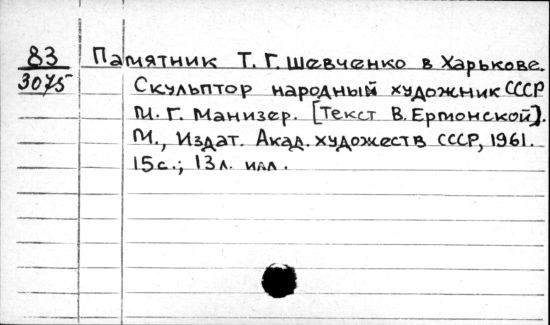 83 Памятник Т. Г. Шевченко в Харькове.
3075 Скульптор народный художник СССР
М. Г. Манизер. [Текст В. Ермонской].
М., Издат. Акад. художеств СССР, 1961.
15 с.; 13 л. илл.